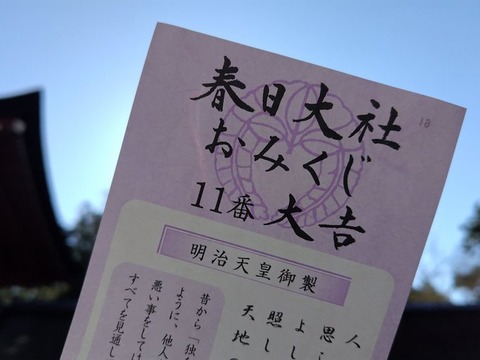 春日大社
おみくじ
11番 大吉
18
明治天皇御製
人
思
よし
照し
天地
昔から「独
ように、他人
悪い事をしては
すべてを見通し